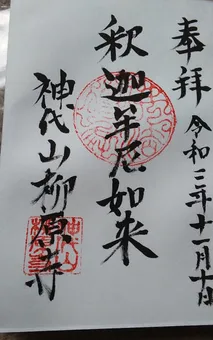 奉拝 令和三年十一月十日
釈迦牟尼如来
神代山柳原寺